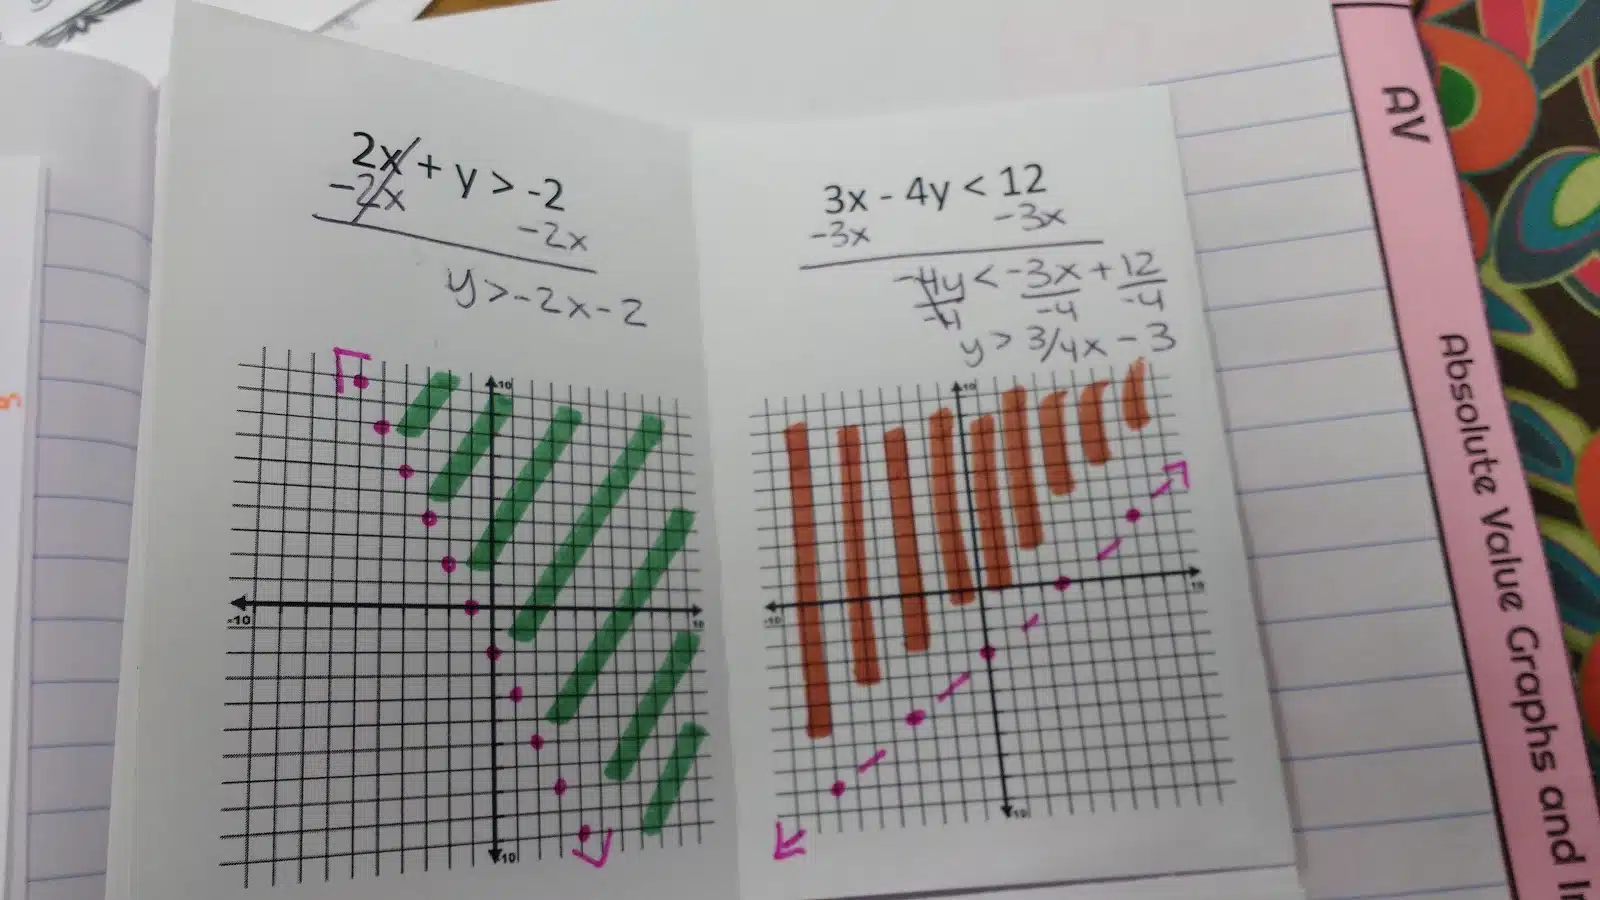 2x + y > -2
-2x -2x
y > -2x - 2
10
-10 10
-10
3x - 4y < 12
-3x -3x
-4y < -3x + 12
-4 -4 -4
y > 3/4x - 3
10
-10 10
-10
AV
Absolute Value Graphs and